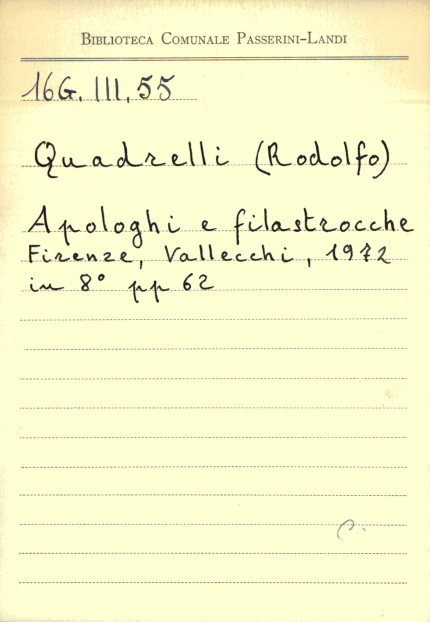 Biblioteca Comunale Passerini-Landi
16G. III. 55
Quadrelli (Rodolfo)
Apologhi e filastrocche
Firenze, Vallecchi, 1972
in 8° pp 62